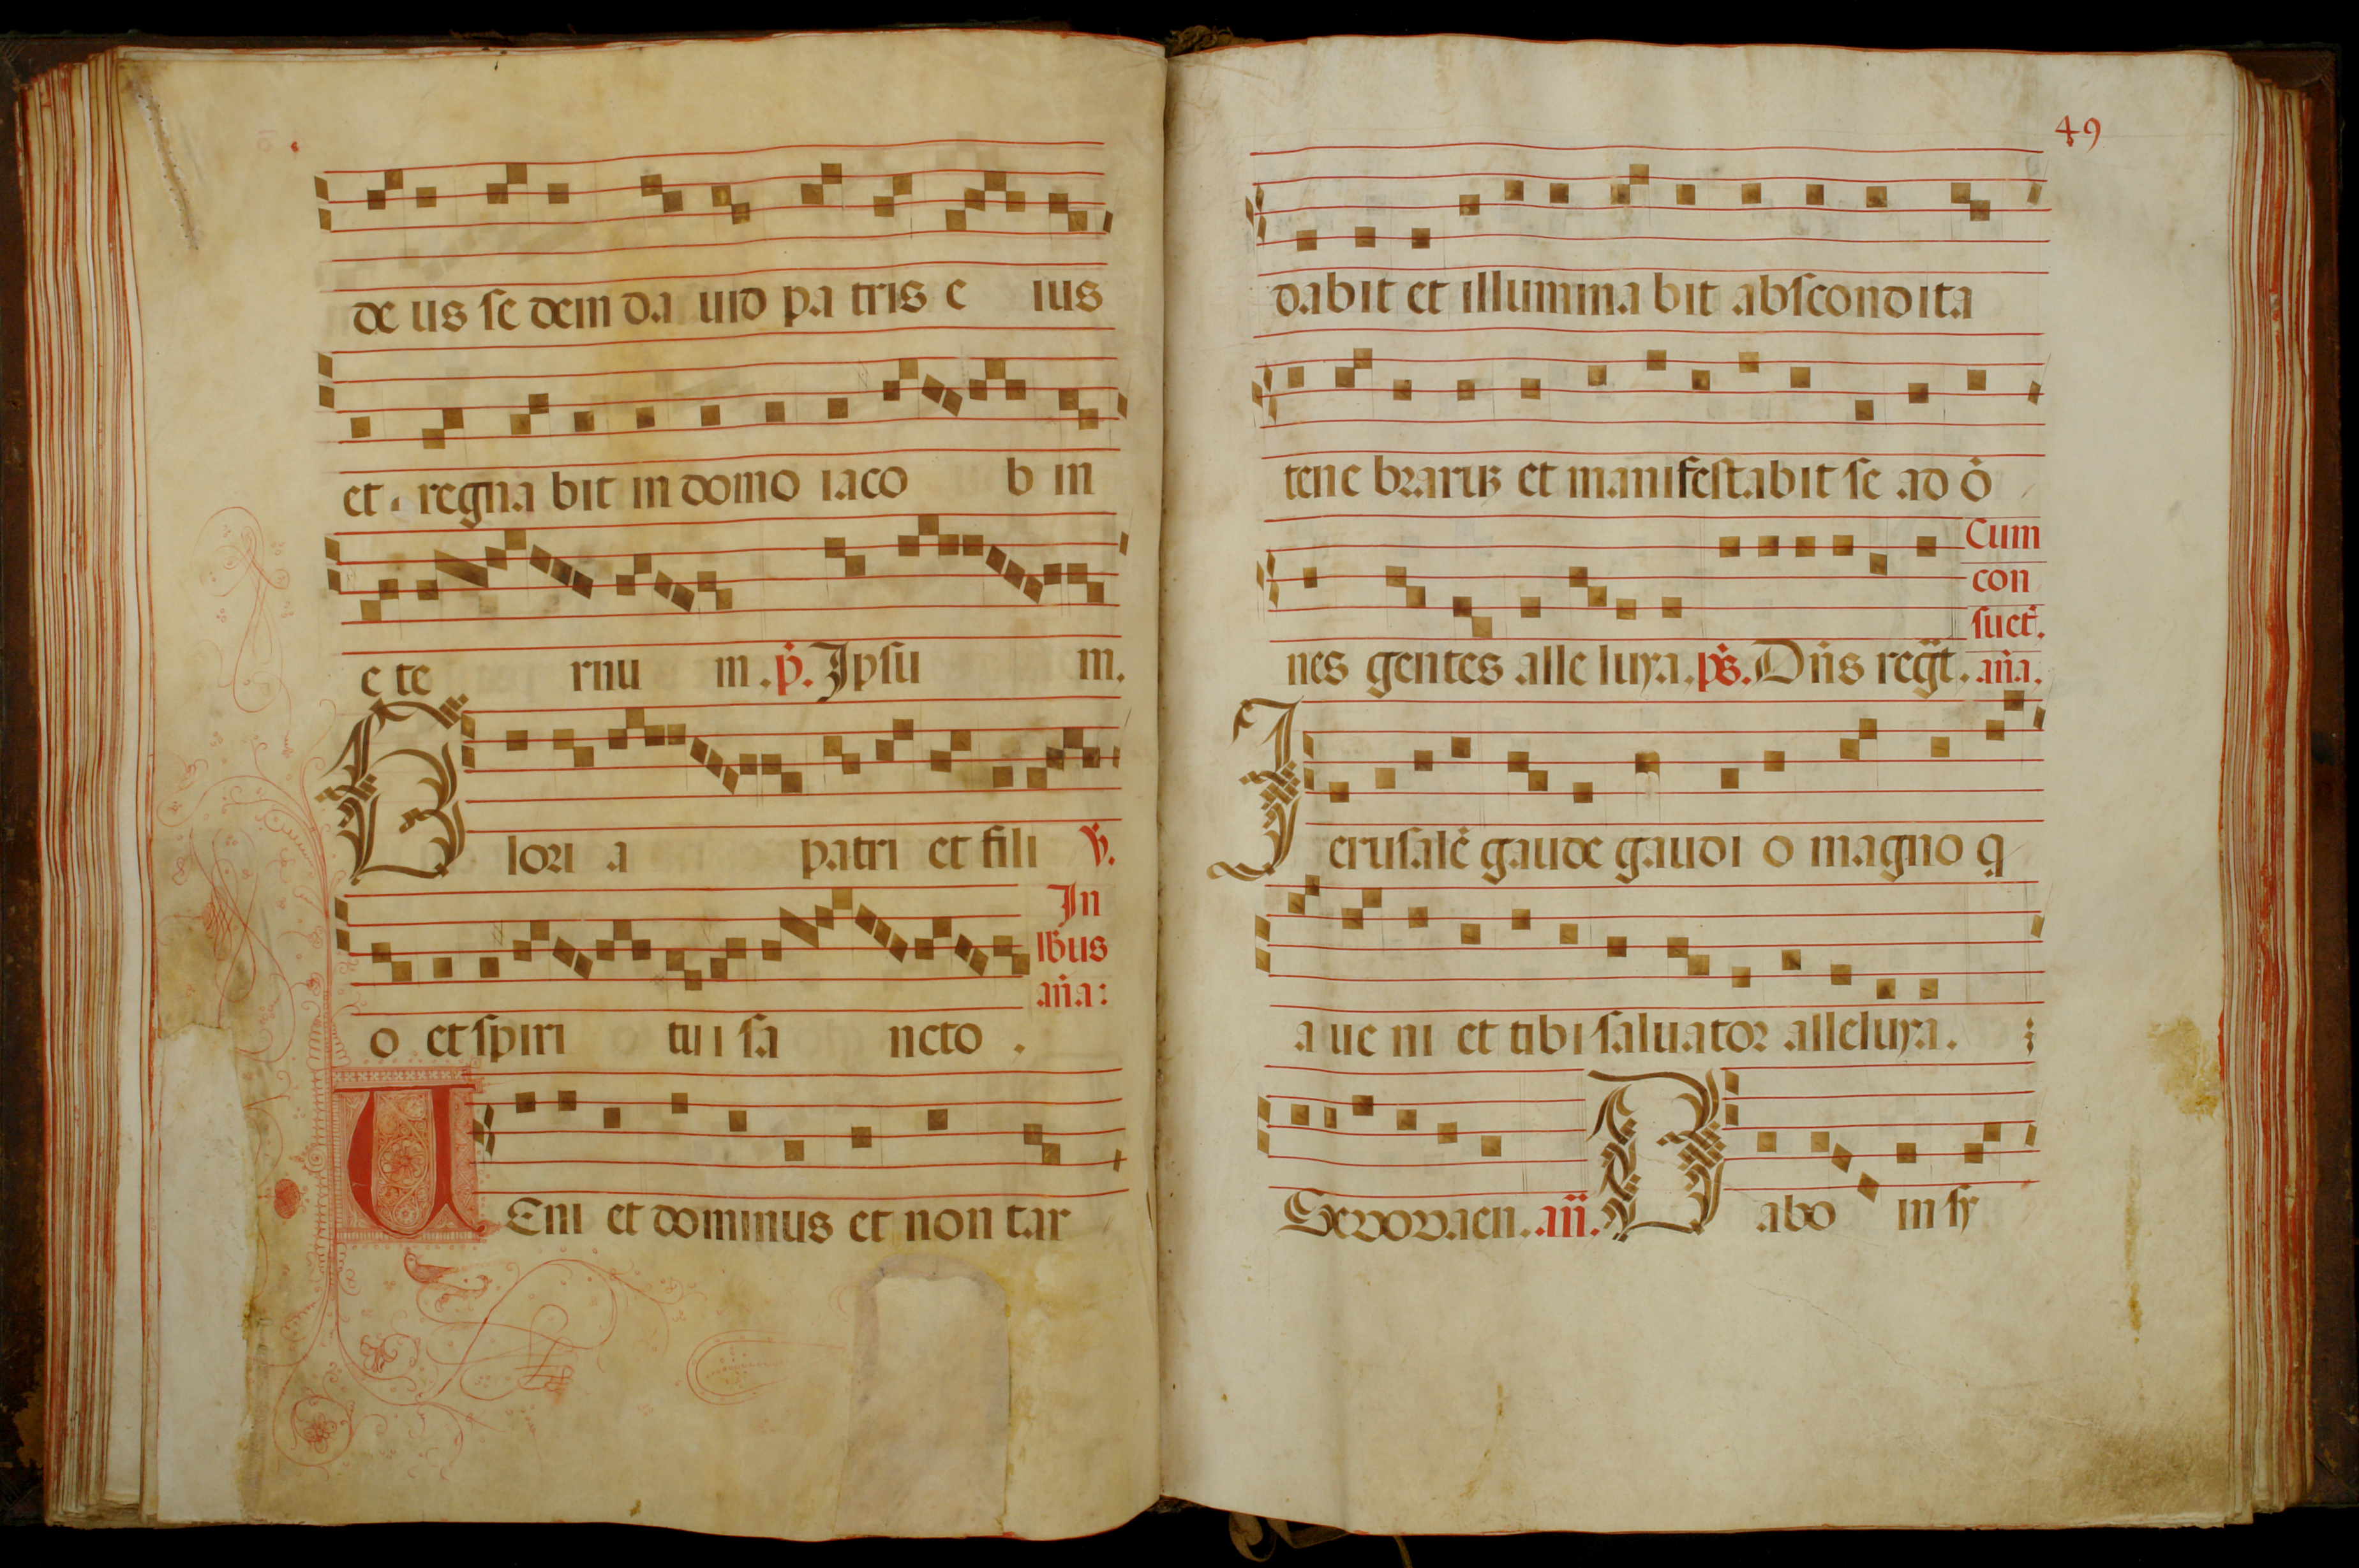 de us se dem da uid pa tris e ius
et regna bit in domo iaco b in
e te rnu m. p̃. Ipsu m.
Glori a patri et fili ℣.
In
lb̃us
añа:
o et spiri tui sa ncto.
UEni et dominus et non tar
49
dabit et illumina bit abscondita
tene brarūꝫ et manifestabit se ad õ
Cum
con
suet̃.
nes gentes alle luya. p̃s. Dñs reg̃t. aña.
Ierusalẽ gaude gaudi o magno q
a ue ni et tibi saluator alleluya.
Sevovaen. añ. Dabo in sy